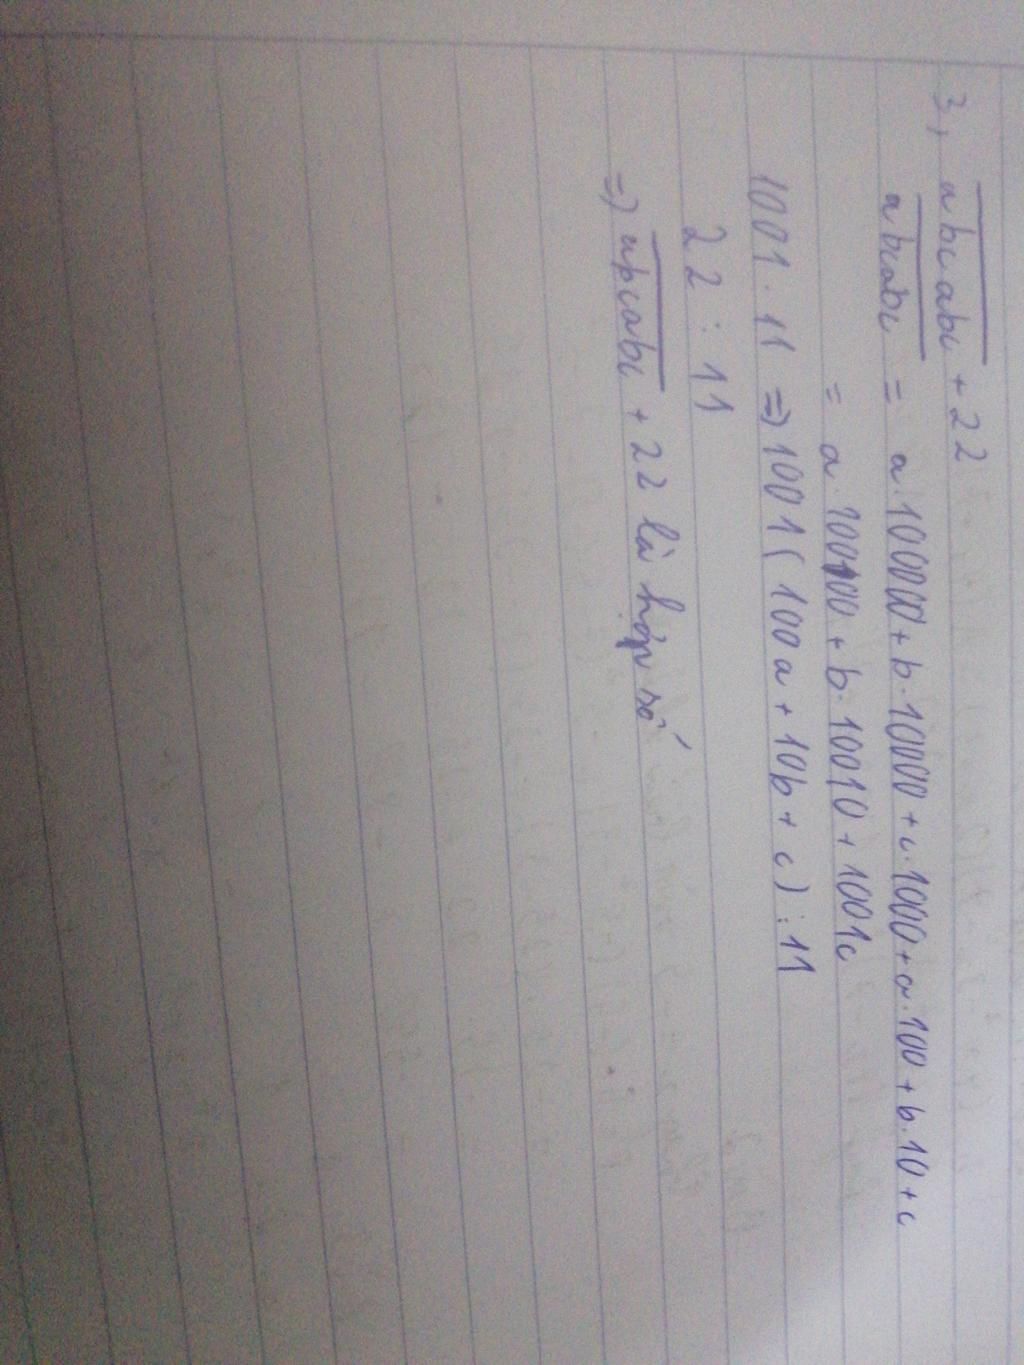 3, abcabc + 22
abcabc = a.100000 + b.10000 + c.1000 + a.100 + b.10 + c
= a.100100 + b.10010 + 1001c
1001 . 11 => 1001 ( 100a + 10b + c ) : 11
22 : 11
=> abcabc + 22 là hợp số